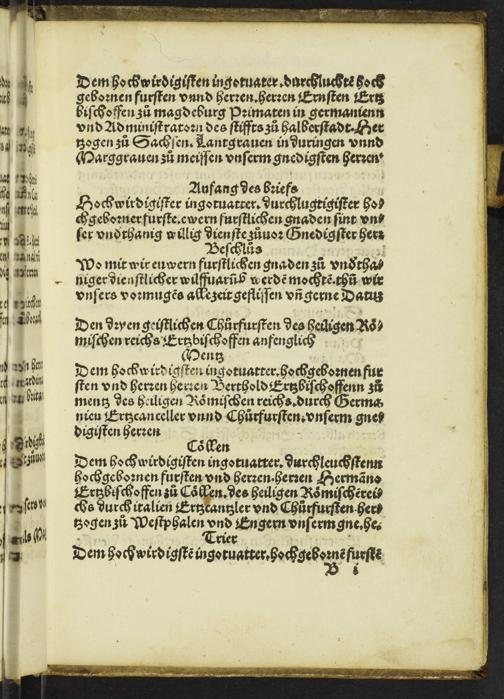 Dem hochwirdigisten ingotuater. durchluchtē hoch
gebornen fursten vnnd herren. herren Ernsten Ertz
bischoffen zů magdeburg Primaten in germanienn
vnd Administratorn des stiffts zů halberstadt. Her
tzogen zů Sachsen. Lantgrauen in duringen vnnd
Marggrauen zů meissen vnserm gnedigsten herren
Anfang des briefs
Hochwirdigister ingotuatter. durchlugtigister ho/
chgeborner furste. ewern furstlichen gnaden sint vn/
ser vnðthanig willig dienste zůuor Gnedigster herr
Beschlüs
Wo mit wir euwern furstlichen gnaden zů vnðtha/
niger dienstlicher wilffuarūß werdē mochtē. thů wir
vnsers vormugēs allezeit geflissen vñ gerne Datuʒ
Den dryen geistlichen Chürfursten des heiligen Rö/
mischen reichs Ertzbischoffen anfenglich
Mentz
Dem hochwirdigsten ingotuatter. hochgebornen fur
sten vnd herzen herzen Berthold Ertzbischoffenn zů
mentz des heiligen Römischen reichs. durch Germa
nien Ertzcanceller vnnd Chürfursten. vnserm gne/
digisten herren
Cöllen
Dem hochwirdigisten ingotuatter. durchleuchstenn
hochgebornen fursten vnd herren. herren Hermāno
Ertzbischoffen zů Cöllen. des heiligen Römischērei/
chs durch italien Ertzcantzler vnd Chürfursten her/
tzogen zů Westphalen vnd Engern vnserm gne. he.
Trier
Dem hochwirdigstē ingotuatter. hochgebornē furstē
B i